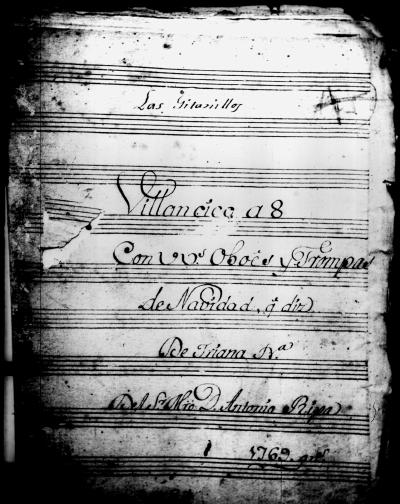 Las Gitanillas
Villancico a 8
Con VVs. Oboes y Trompas
de Navidad, q diz.
De Triana Rª
Del Sr. Mro. D. Antonio Ripa
1769